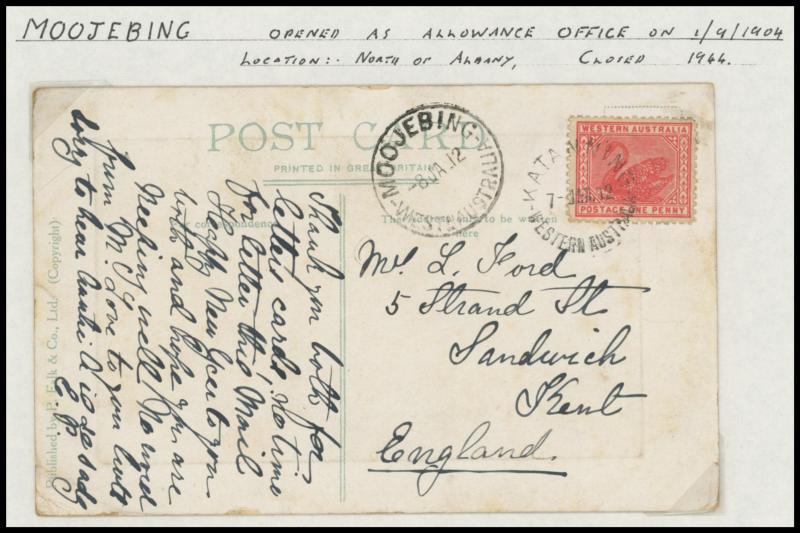 MOOJEBING OPENED AS ALLOWANCE OFFICE ON 1/9/1904
LOCATION:- NORTH OF ALBANY, CLOSED 1944.
POST CARD
PRINTED IN GREAT BRITAIN
for correspondence
The address only to be written
here
MOOJEBING
-8 JA.12
WESTN AUSTRALIA
WESTERN AUSTRALIA
POSTAGE ONE PENNY
KATANNING
WESTERN AUSTRALIA
Mr L. Ford
5 Strand St
Sandwich
Kent
England.
Thank you both for
letters cards, no time
for letter this Mail
Happy New Year to you
both and hope you are
Keeping well. No word
from M. love to you both
sorry to hear Auntie is so
E.
Published by P. Falk & Co., Ltd. (Copyright)